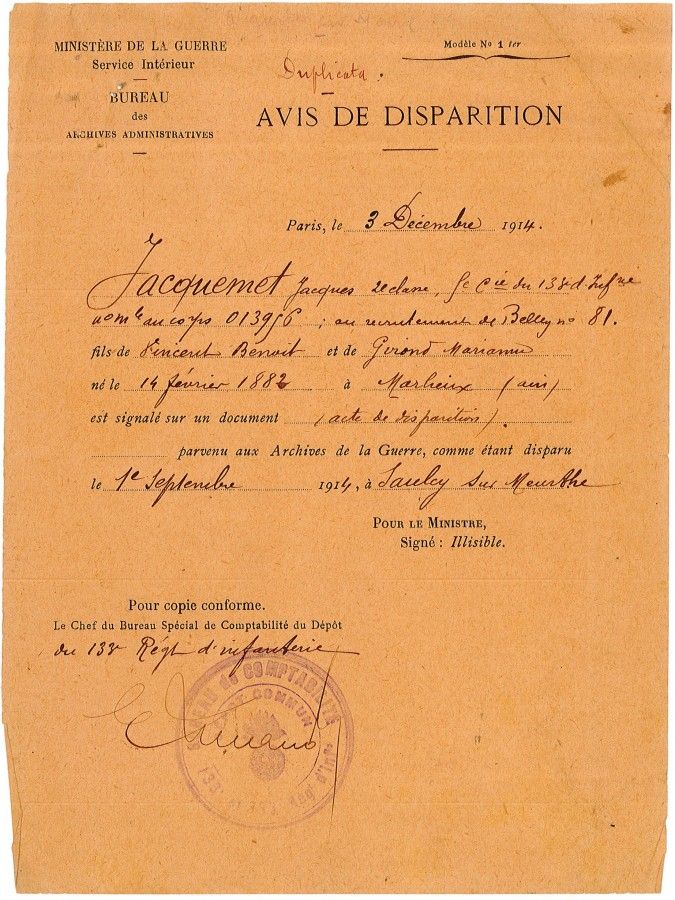 MINISTÈRE DE LA GUERRE
Service Intérieur
BUREAU
des
ARCHIVES ADMINISTRATIVES
Modèle No 1 ter
Duplicata.
AVIS DE DISPARITION
Paris, le 3 Décembre 1914.
Jacquemet Jacques 2e classe, Cie du 133e d'Infrie
no mle au corps 013956 ; au recrutement de Belley no 81.
fils de Vincent Benoit et de Girond Marianne
né le 14 février 1882 à Marlieux (ain)
est signalé sur un document (acte de disparition).
parvenu aux Archives de la Guerre, comme étant disparu
le 1e Septembre 1914, à Saulcy sur Meurthe
POUR LE MINISTRE,
Signé : Illisible.
Pour copie conforme.
Le Chef du Bureau Spécial de Comptabilité du Dépôt
du 133e Régt d'infanterie
BUREAU de COMPTABILITÉ
DÉPÔT COMMUN
133e et 333e Régt d'Infie